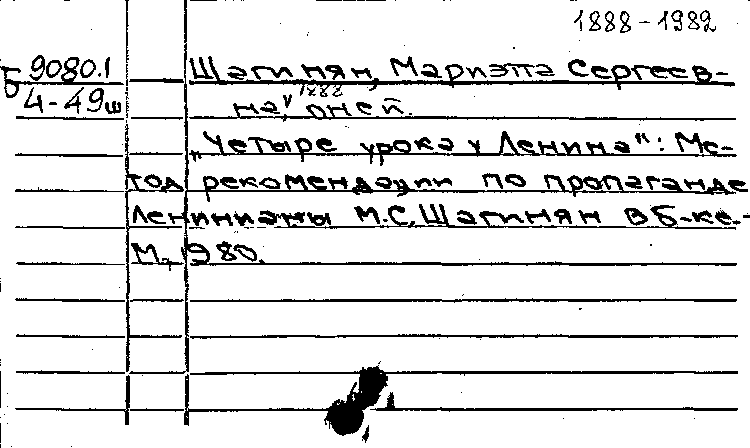 1888-1982
Б 9080.1 Шагинян, Мариэтта Сергеев-
4-49ш на, 1888 о ней.
„Четыре урока у Ленина": Ме-
тод рекомендации по пропаганде
Ленинианы М.С. Шагинян в б-ке.-
М., 1980.